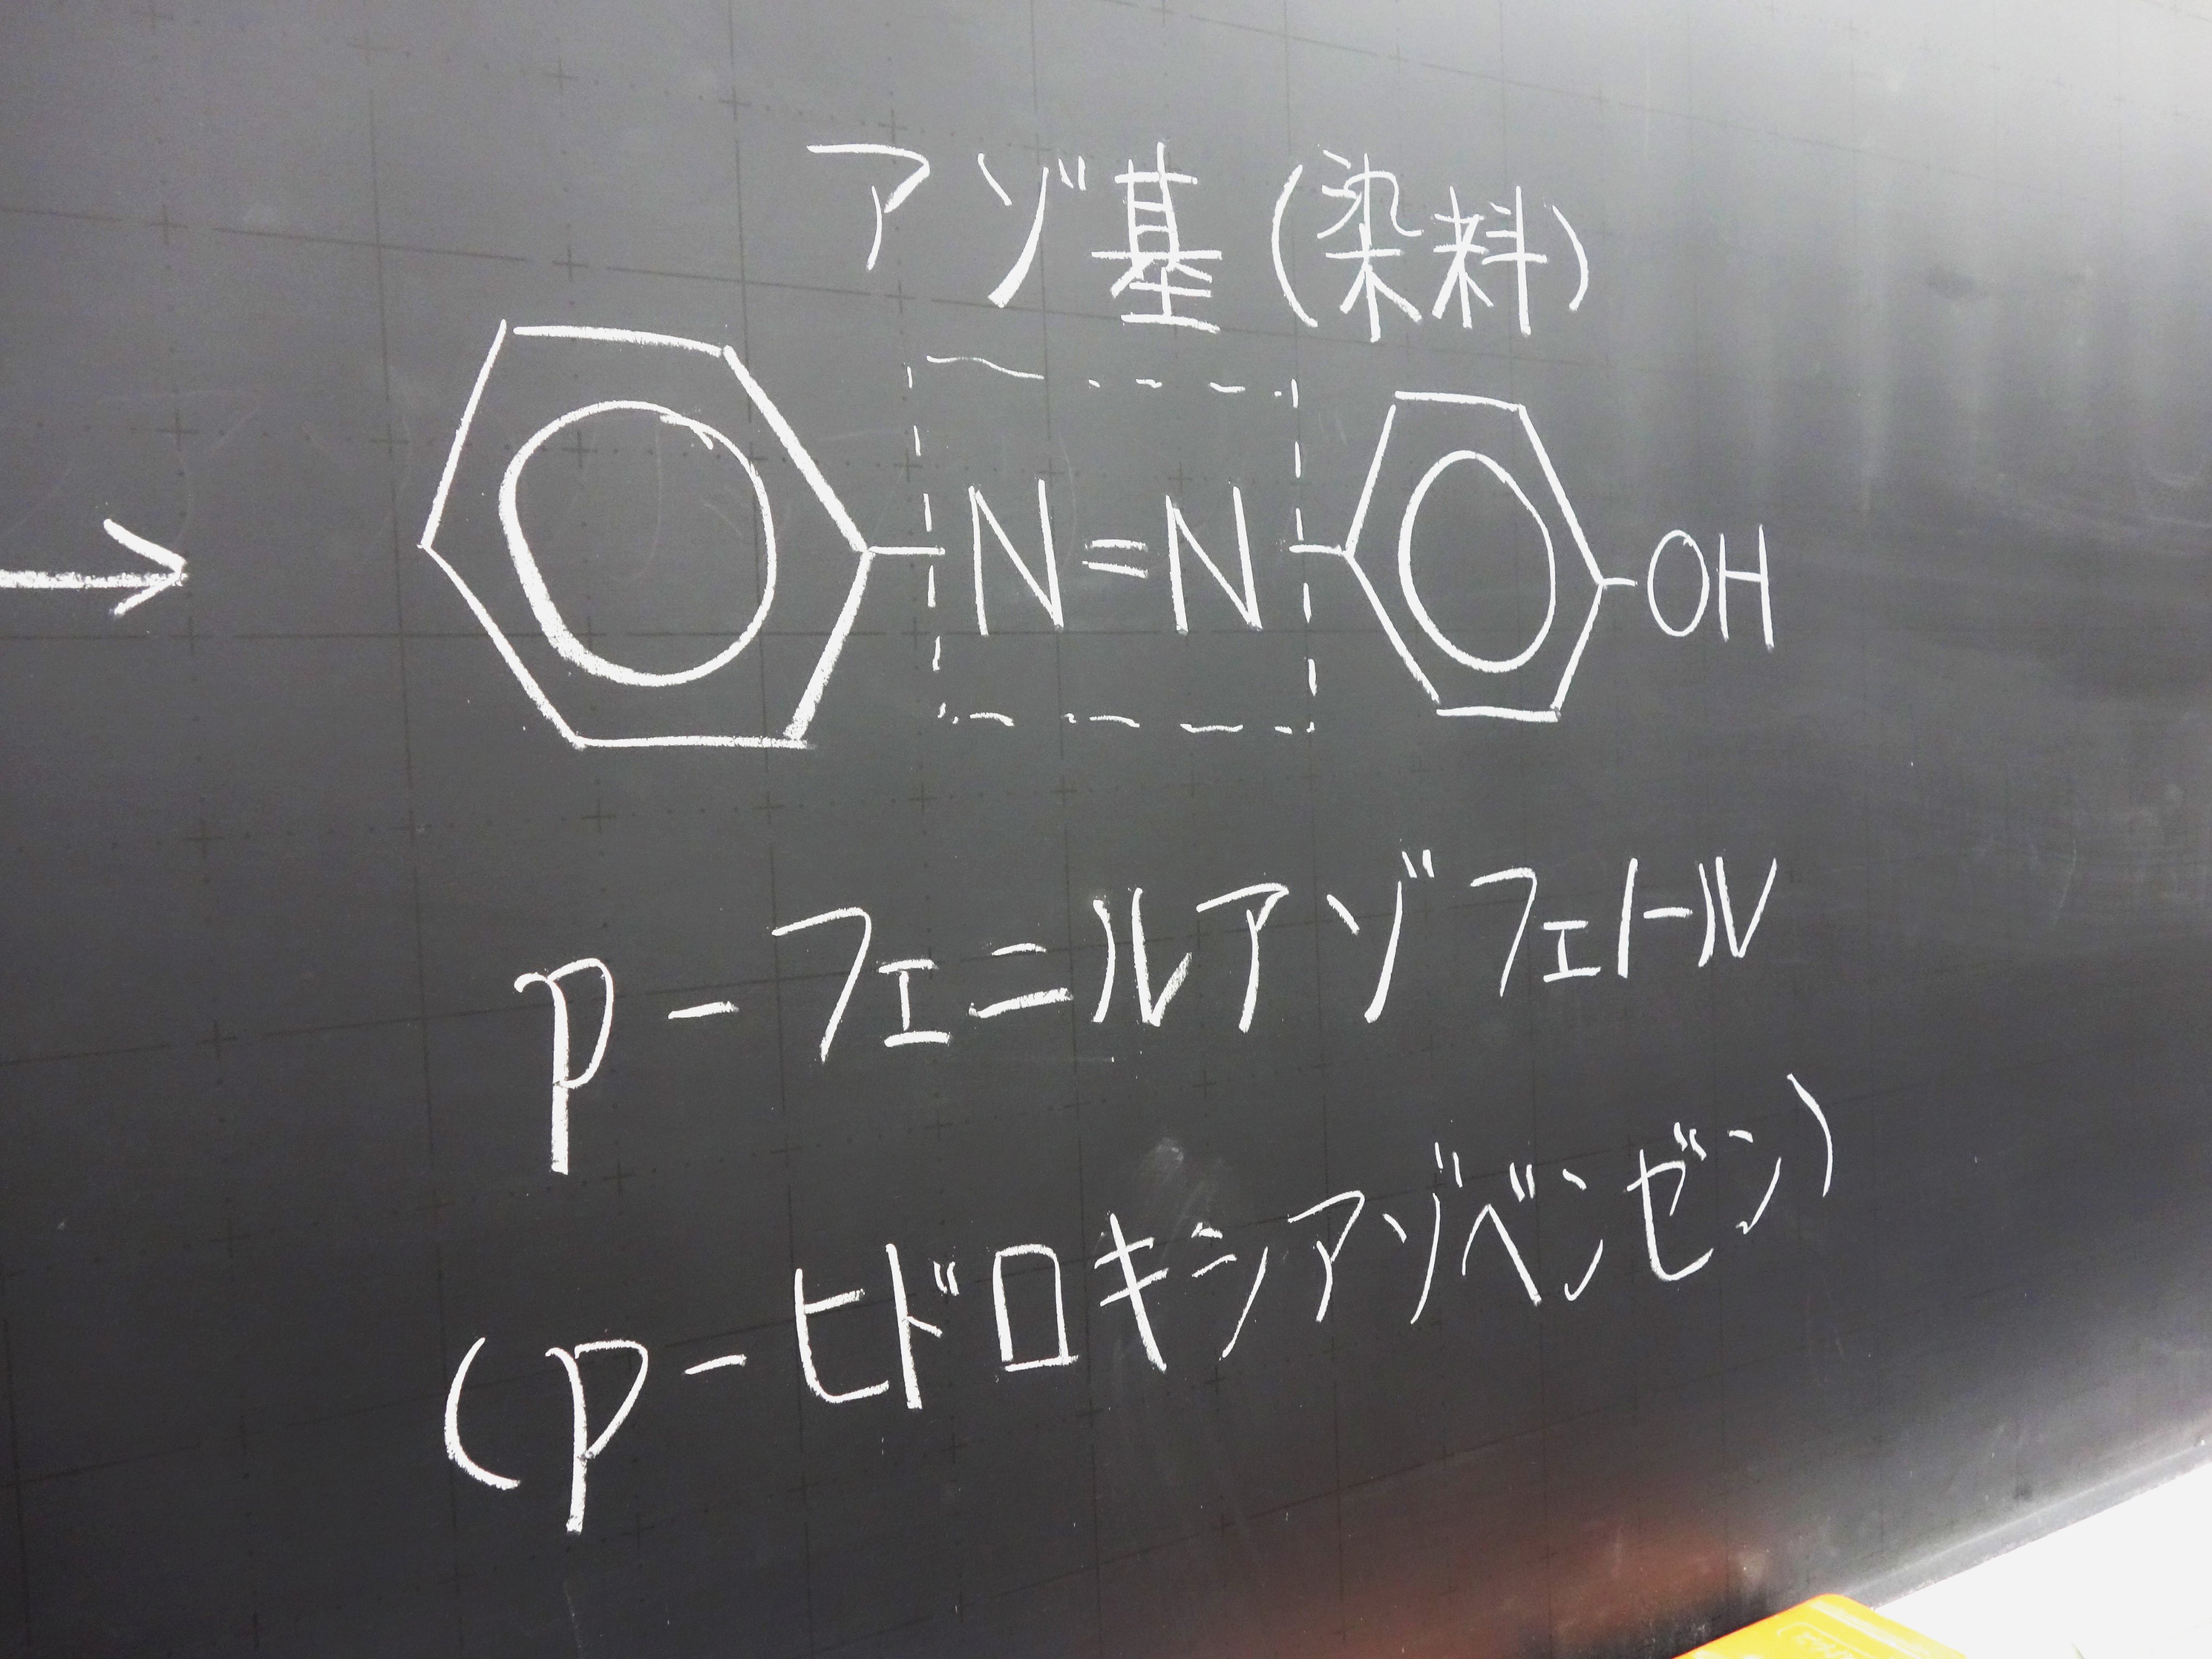 アゾ基(染料)
N=N OH
p-フェニルアゾフェノール
(p-ヒドロキシアゾベンゼン)